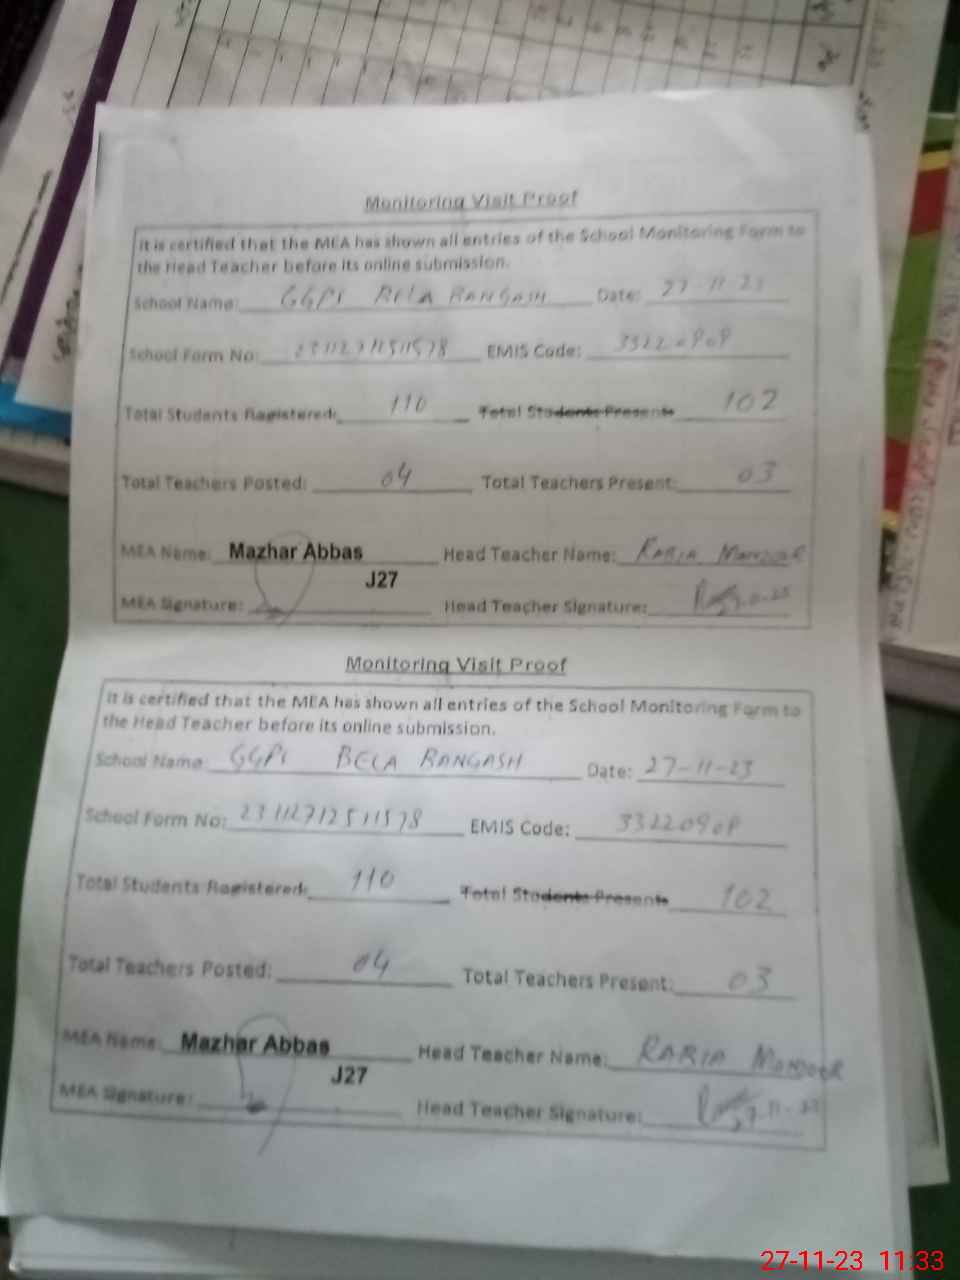 Monitoring Visit Proof
It is certified that the MEA has shown all entries of the School Monitoring Form to
the Head Teacher before its online submission.
School Name: GGPS BELA BANGASH Date: 27-11-23
School Form No: 23112712511578 EMIS Code: 33220909
Total Students Registered: 110 Total Students Present: 102
Total Teachers Posted: 04 Total Teachers Present: 03
MEA Name: Mazhar Abbas Head Teacher Name: RABIA MANZOOR
J27
MEA Signature: Head Teacher Signature:
Monitoring Visit Proof
It is certified that the MEA has shown all entries of the School Monitoring Form to
the Head Teacher before its online submission.
School Name: GGPS BELA BANGASH Date: 27-11-23
School Form No: 23112712511578 EMIS Code: 33220909
Total Students Registered: 110 Total Students Present: 102
Total Teachers Posted: 04 Total Teachers Present: 03
MEA Name: Mazhar Abbas Head Teacher Name: RABIA MANZOOR
J27
MEA Signature: Head Teacher Signature: 27-11-23
27-11-23 11:33